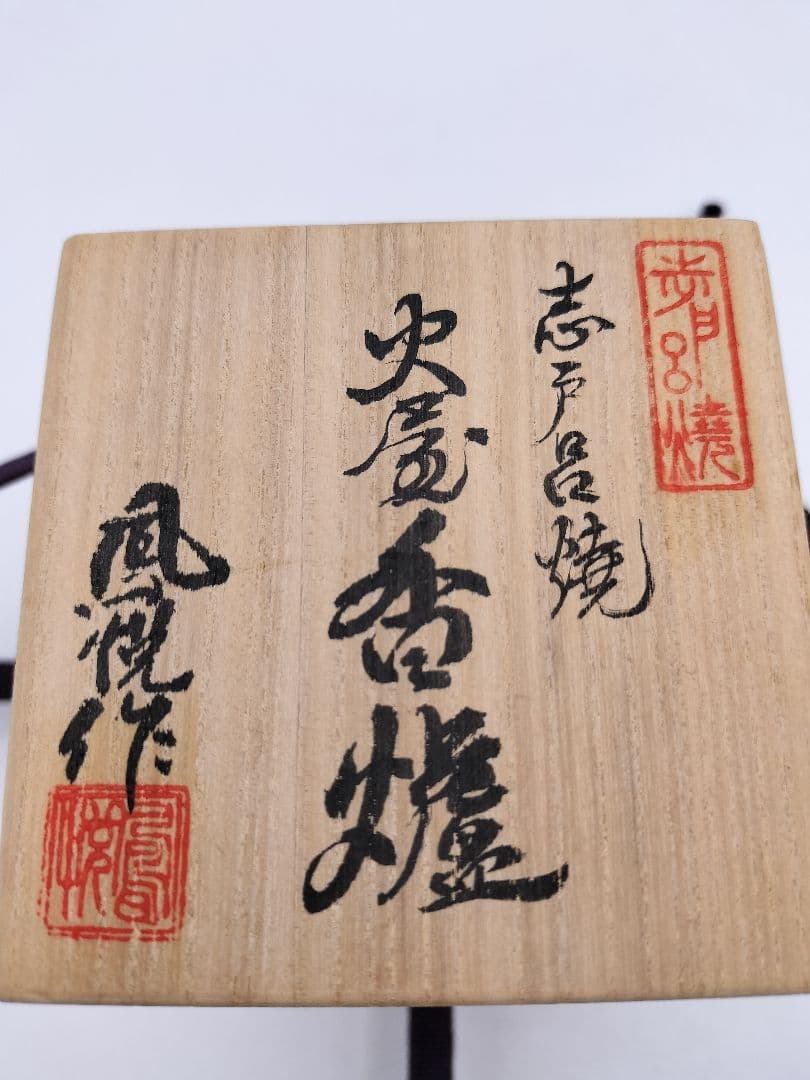 志戸呂燒
志戸呂燒
火屋香爐
悦作